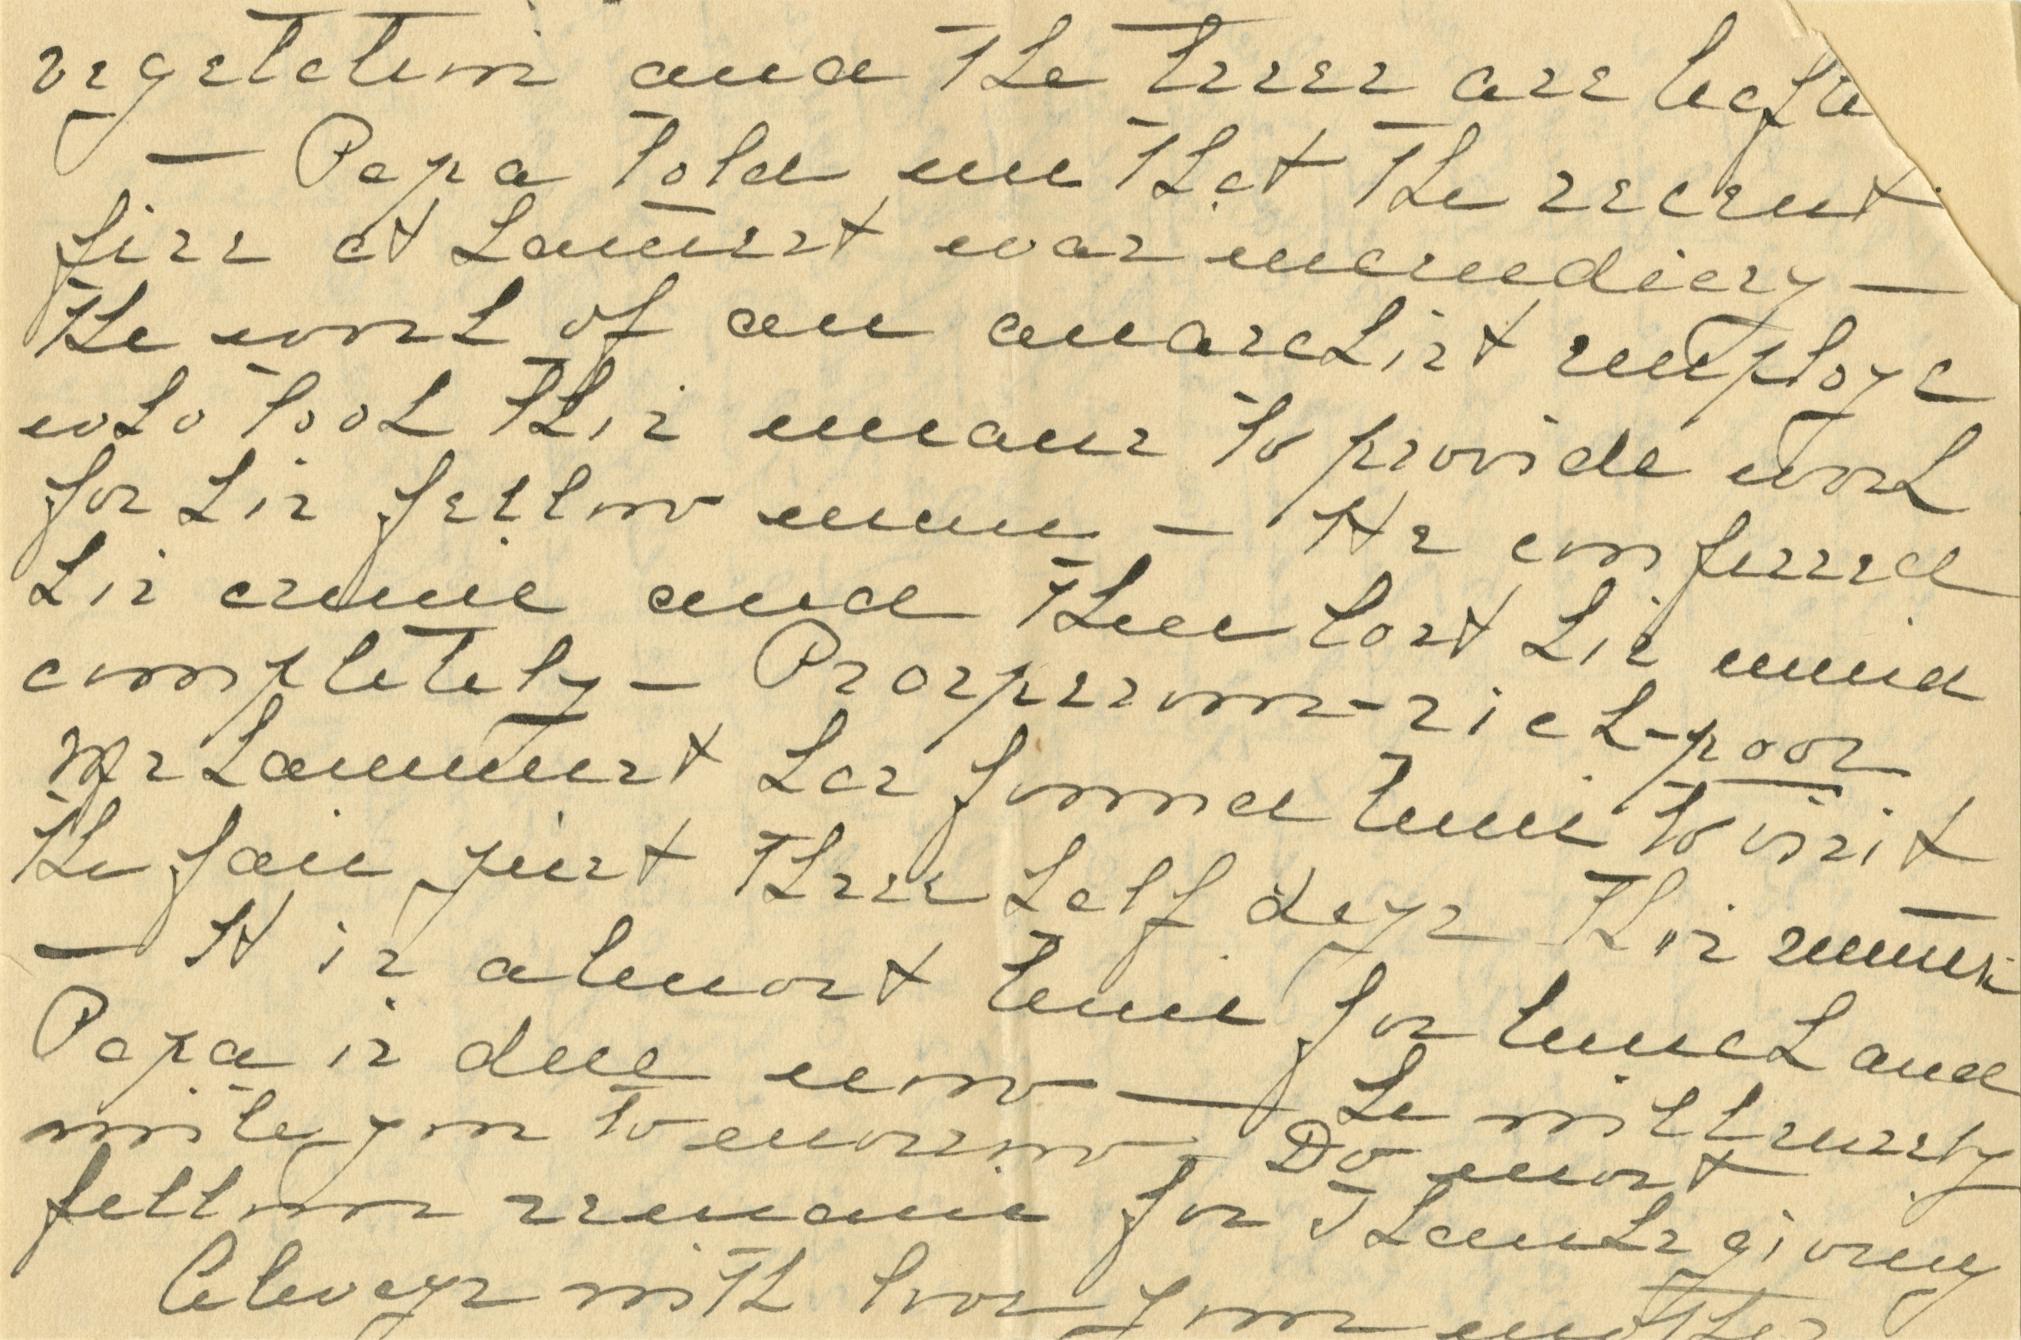 vegetation and the trees are leafle
— Papa told me that the recent
fire at Lammert was incendiary —
the work of an anarchist employe
who took this means to provide work
for his fellow men — He confessed
his crime and then lost his mind
completely — Prosperour-rich-poor
Mr Lammert has found time to visit
the fair just three half days this summer
— It is almost time for lunch and
Papa is due now — he will surely
write you tomorrow — Do most
fellows remain for Thanksgiving
Always with love your mother